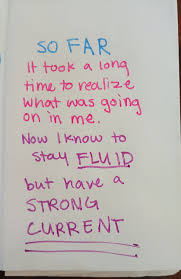 SO FAR
It took a long
time to realize
What was going
on in me.
Now I know to
stay FLUID
but have a
STRONG
CURRENT